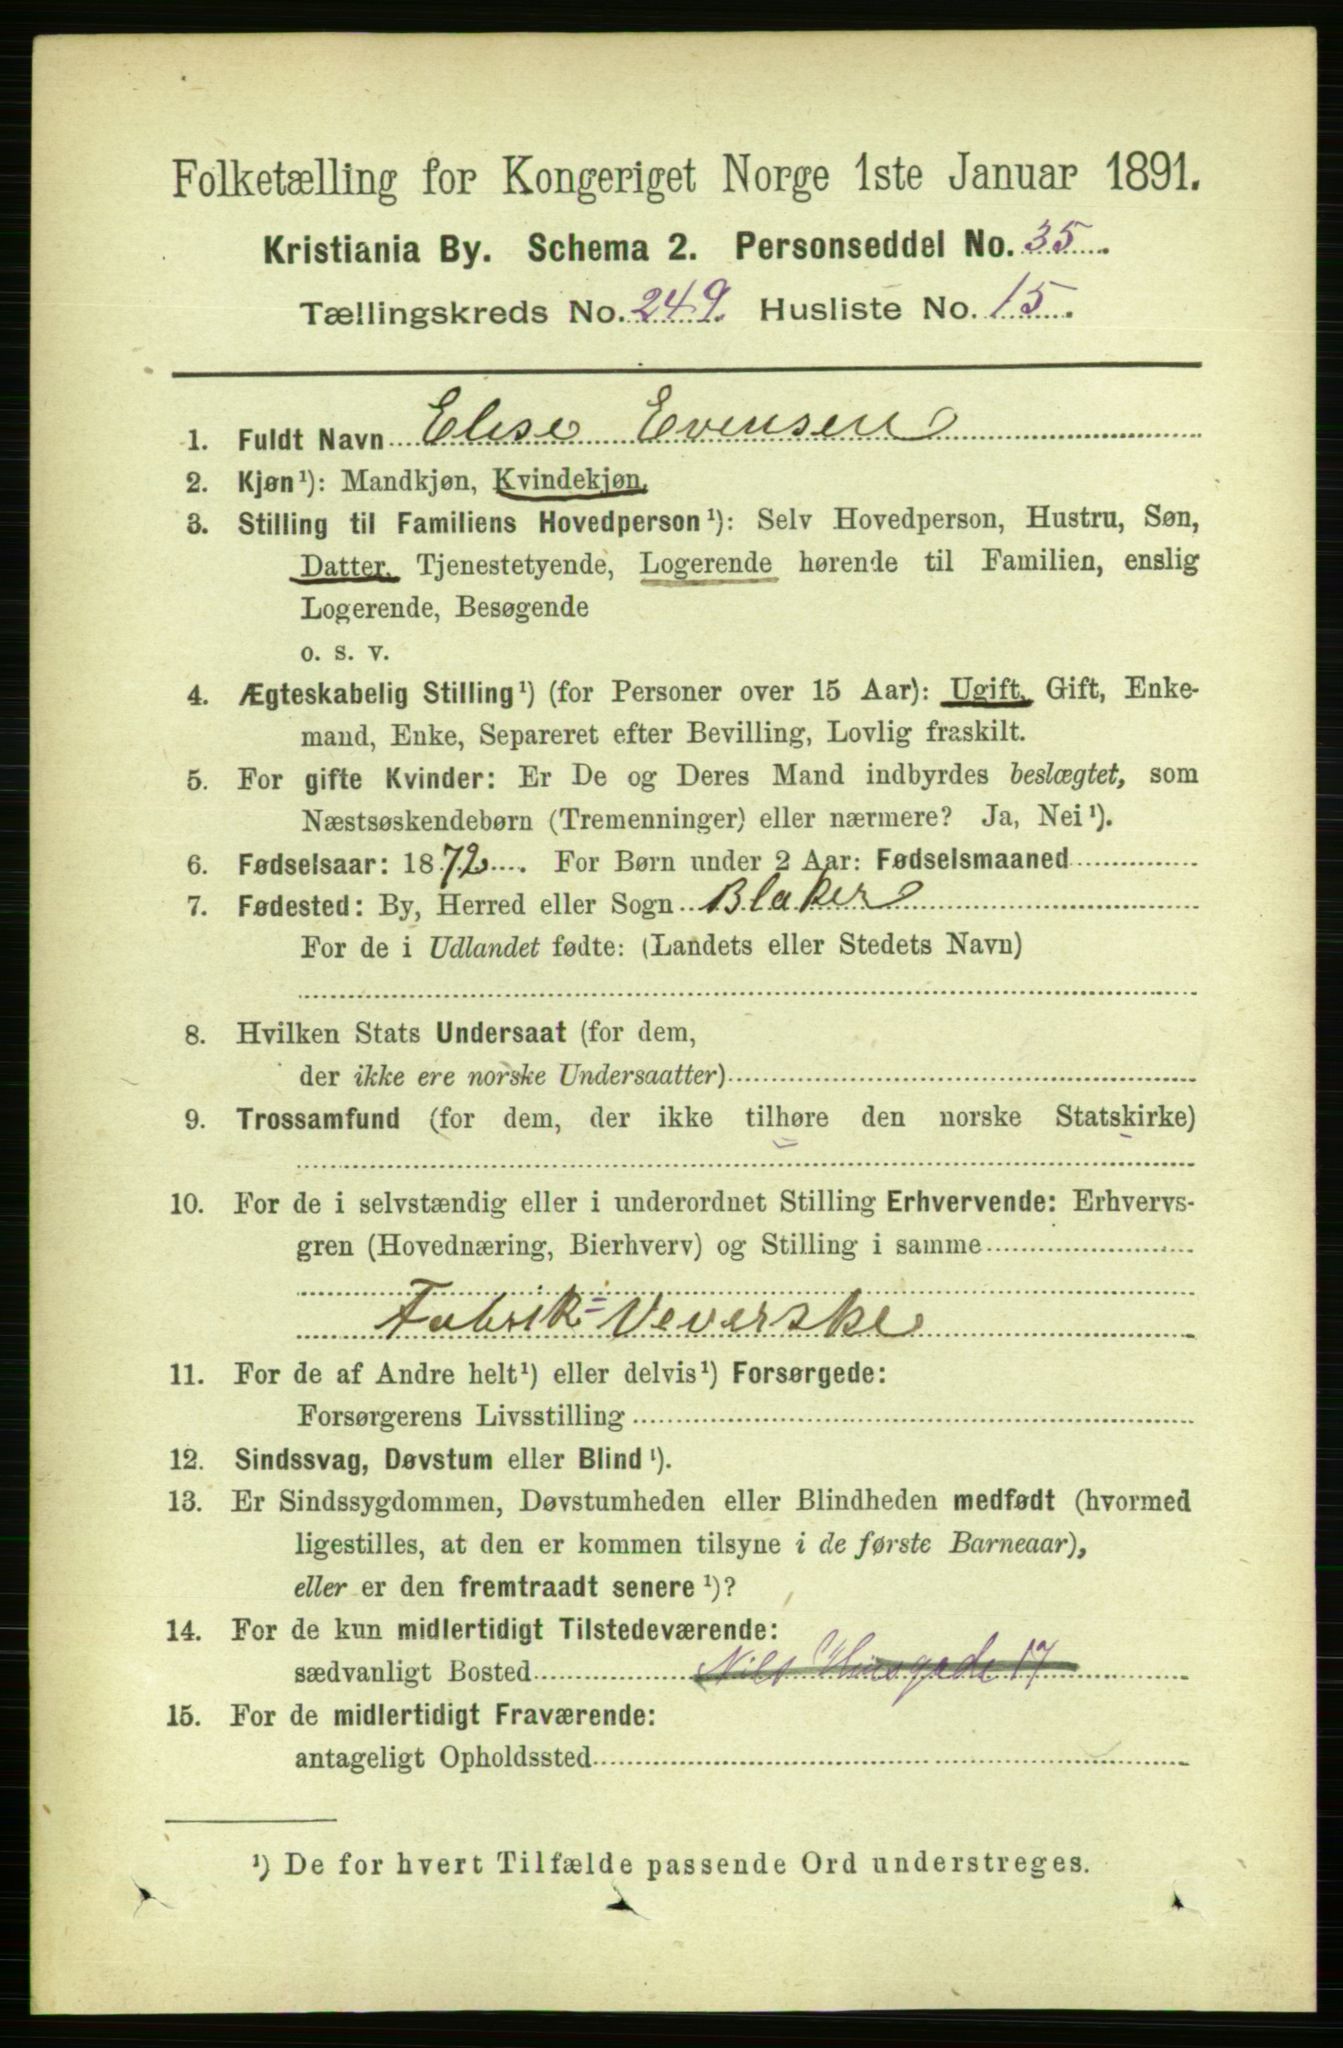 Folketælling for Kongeriget Norge 1ste Januar 1891.
Kristiania By. Schema 2. Personseddel No. 35.
Tællingskreds No. 249. Husliste No. 15.
1. Fuldt Navn Elise Evensen
2. Kjøn¹): Mandkjøn, Kvindekjøn.
3. Stilling til Familiens Hovedperson¹): Selv Hovedperson, Hustru, Søn,
Datter, Tjenestetyende, Logerende hørende til Familien, enslig
Logerende, Besøgende
o. s. v.
4. Ægteskabelig Stilling¹) (for Personer over 15 Aar): Ugift, Gift, Enke-
mand, Enke, Separeret efter Bevilling, Lovlig fraskilt.
5. For gifte Kvinder: Er De og Deres Mand indbyrdes beslægtet, som
Næstsøskendebørn (Tremenninger) eller nærmere? Ja, Nei¹).
6. Fødselsaar: 1872. For Børn under 2 Aar: Fødselsmaaned
7. Fødested: By, Herred eller Sogn Blaker
For de i Udlandet fødte: (Landets eller Stedets Navn)
8. Hvilken Stats Undersaat (for dem,
der ikke ere norske Undersaatter)
9. Trossamfund (for dem, der ikke tilhøre den norske Statskirke)
10. For de i selvstændig eller i underordnet Stilling Erhvervende: Erhvervs-
gren (Hovednæring, Bierhverv) og Stilling i samme
Fabrik=Veverske
11. For de af Andre helt¹) eller delvis¹) Forsørgede:
Forsørgerens Livsstilling
12. Sindssvag, Døvstum eller Blind¹).
13. Er Sindssygdommen, Døvstumheden eller Blindheden medfødt (hvormed
ligestilles, at den er kommen tilsyne i de første Barneaar),
eller er den fremtraadt senere¹)?
14. For de kun midlertidigt Tilstedeværende:
sædvanligt Bosted Nils 17
15. For de midlertidigt Fraværende:
antageligt Opholdssted
¹) De for hvert Tilfælde passende Ord understreges.